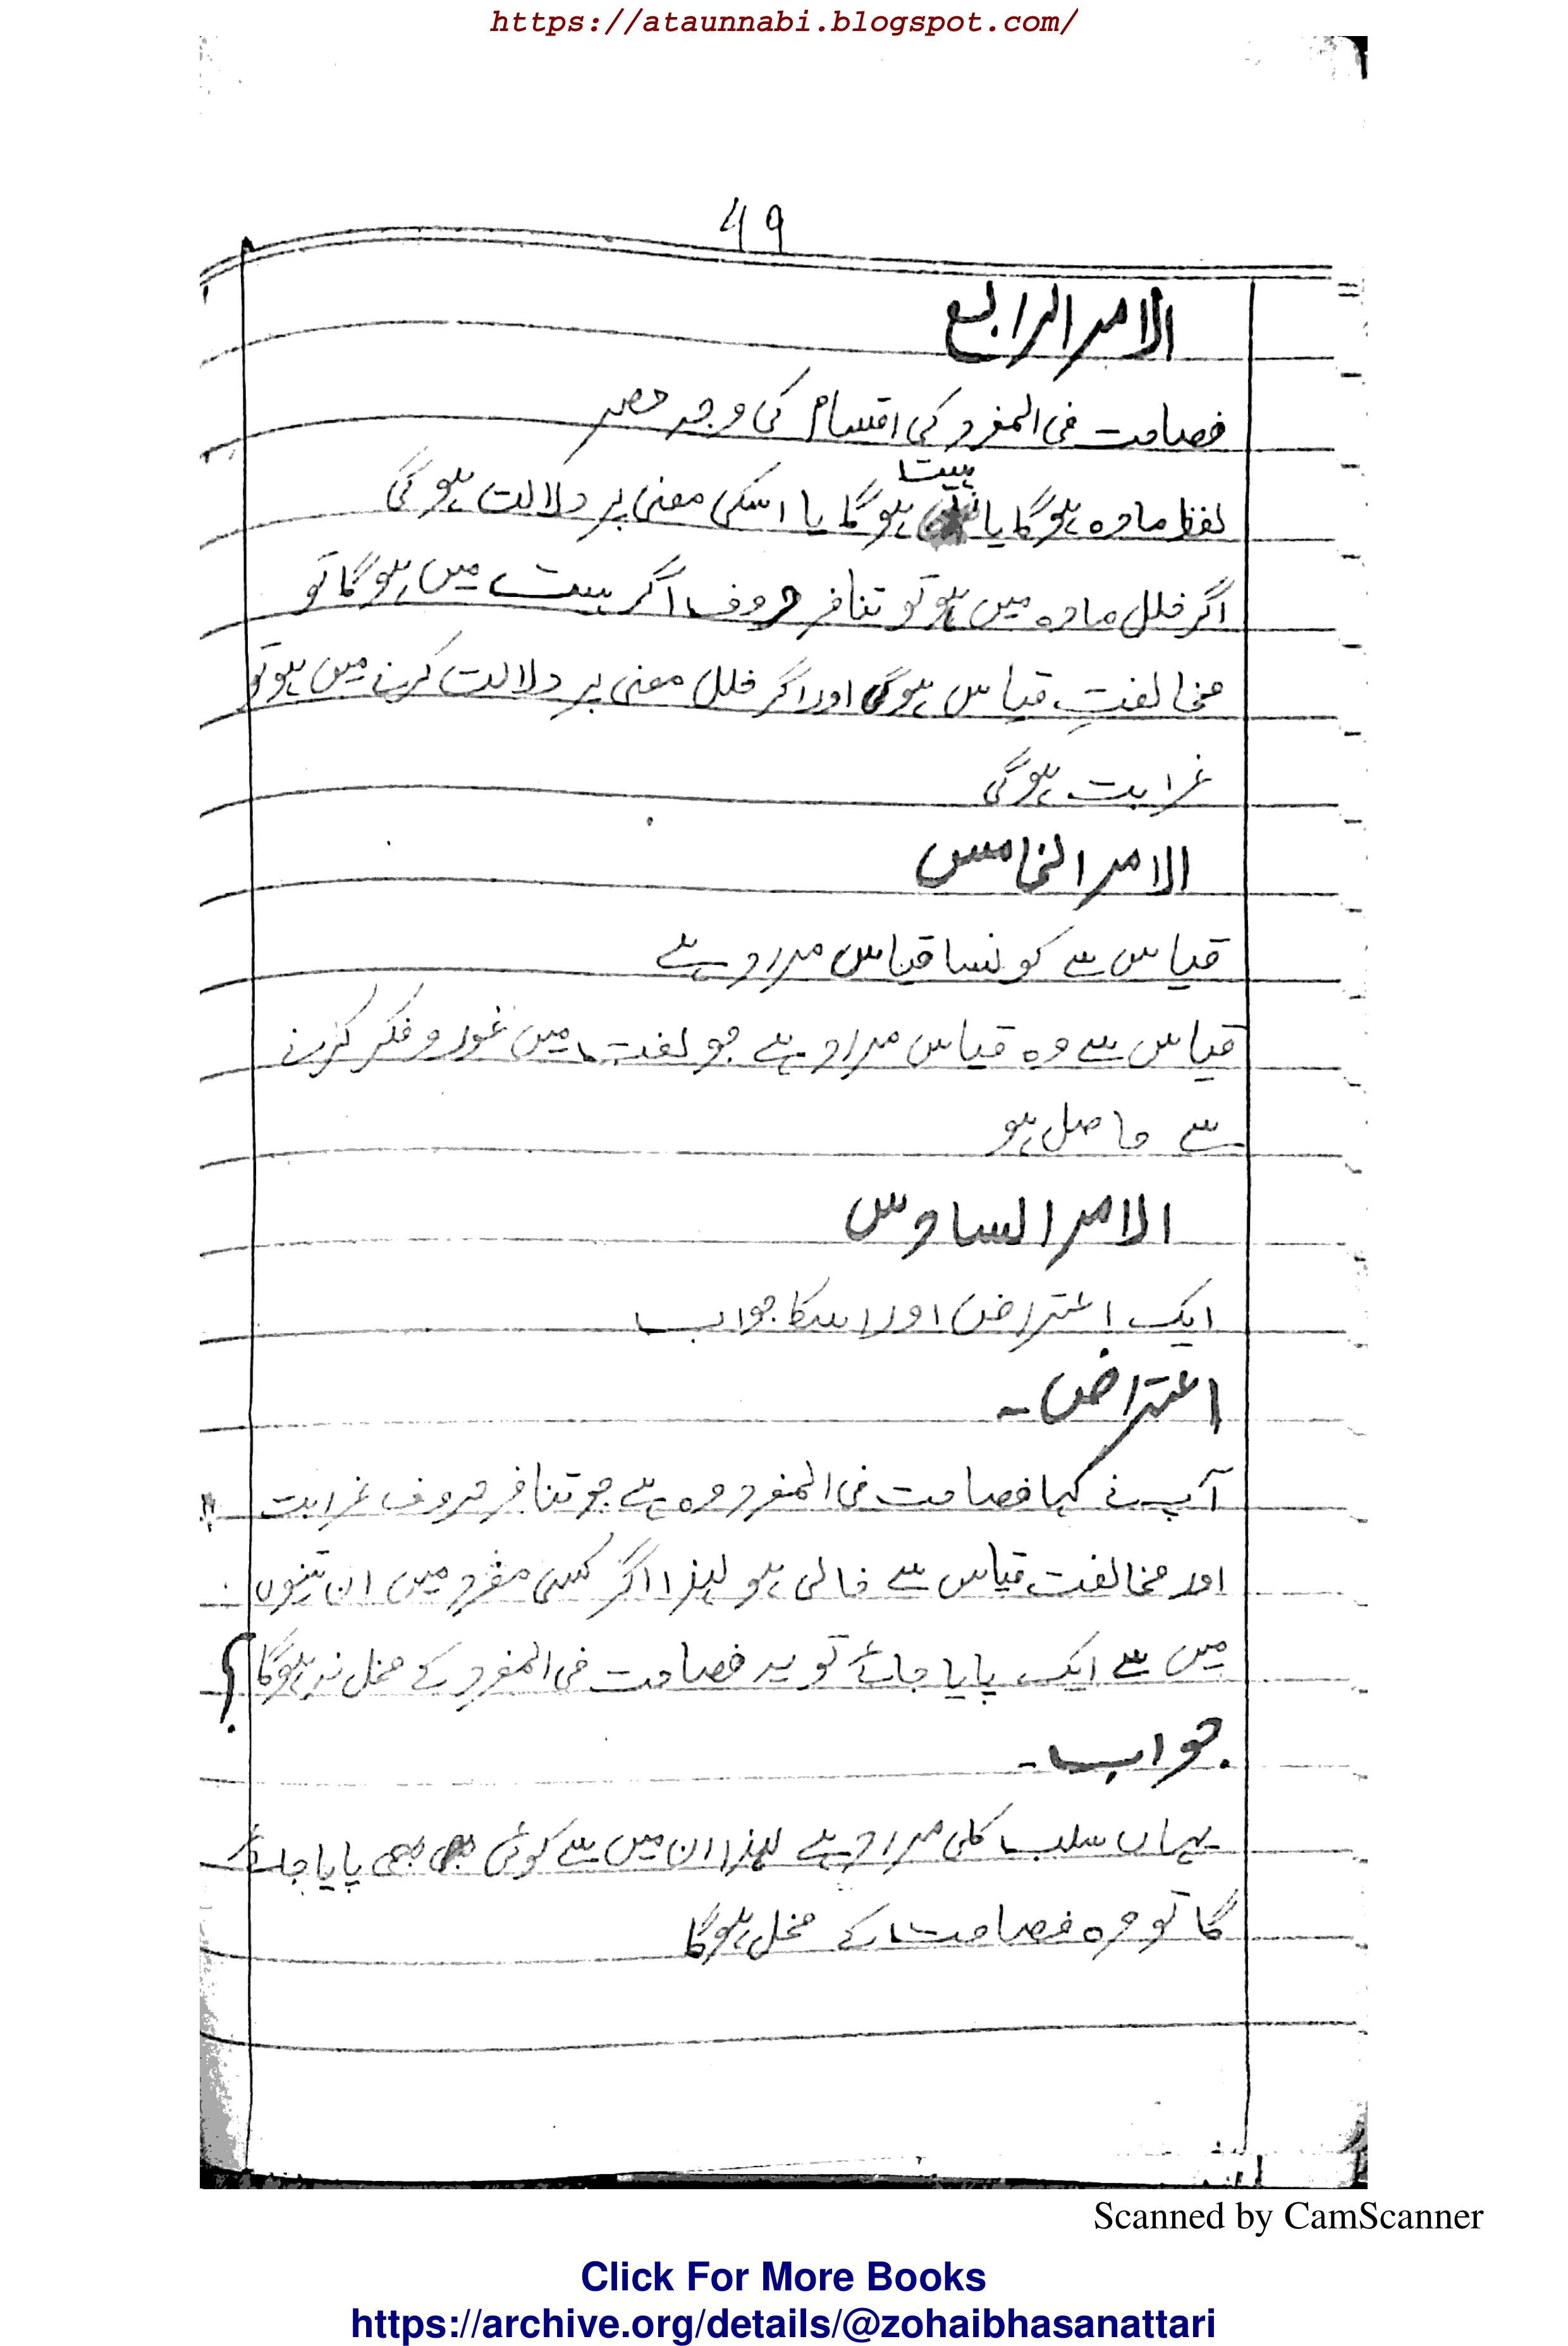 https://ataunnabi.blogspot.com/
49
الامر الرابع
فصاحت فی المفرد کی اقسام کی وجہ حصر
ہیت
لفظ مادہ ہوگا یا ہوگا یا اسکی معنی پر دلالت ہوگی
اگر خلل مادہ میں ہو تو تنافر حروف اگر ہیت میں ہوگا تو
مخالفتِ قیاس ہوگی اور اگر خلل معنی پر دلالت کرنے میں ہو تو
غرابت ہوگی
الامر الخامس
قیاس سے کونسا قیاس مراد ہے
قیاس سے وہ قیاس مراد ہے جو لغت میں غور و فکر کرنے
سے حاصل ہو
الامر السادس
ایک اعتراض اور اسکا جواب
اعتراض۔
آپ نے کہا فصاحت فی المفرد وہ ہے جو تنافر حروف غرابت
اور مخالفت قیاس سے خالی ہو لہذا اگر کسی مفرد میں ان تینوں
میں سے ایک پایا جائے تو یہ فصاحت فی المفرد کے مخل نہ ہوگا؟
جواب۔
یہاں سلب کلی مراد ہے لہذا ان میں سے کوئی بھی پایا جائے
گا تو وہ فصاحت کے مخل ہوگا
Scanned by CamScanner
Click For More Books
https://archive.org/details/@zohaibhasanattari